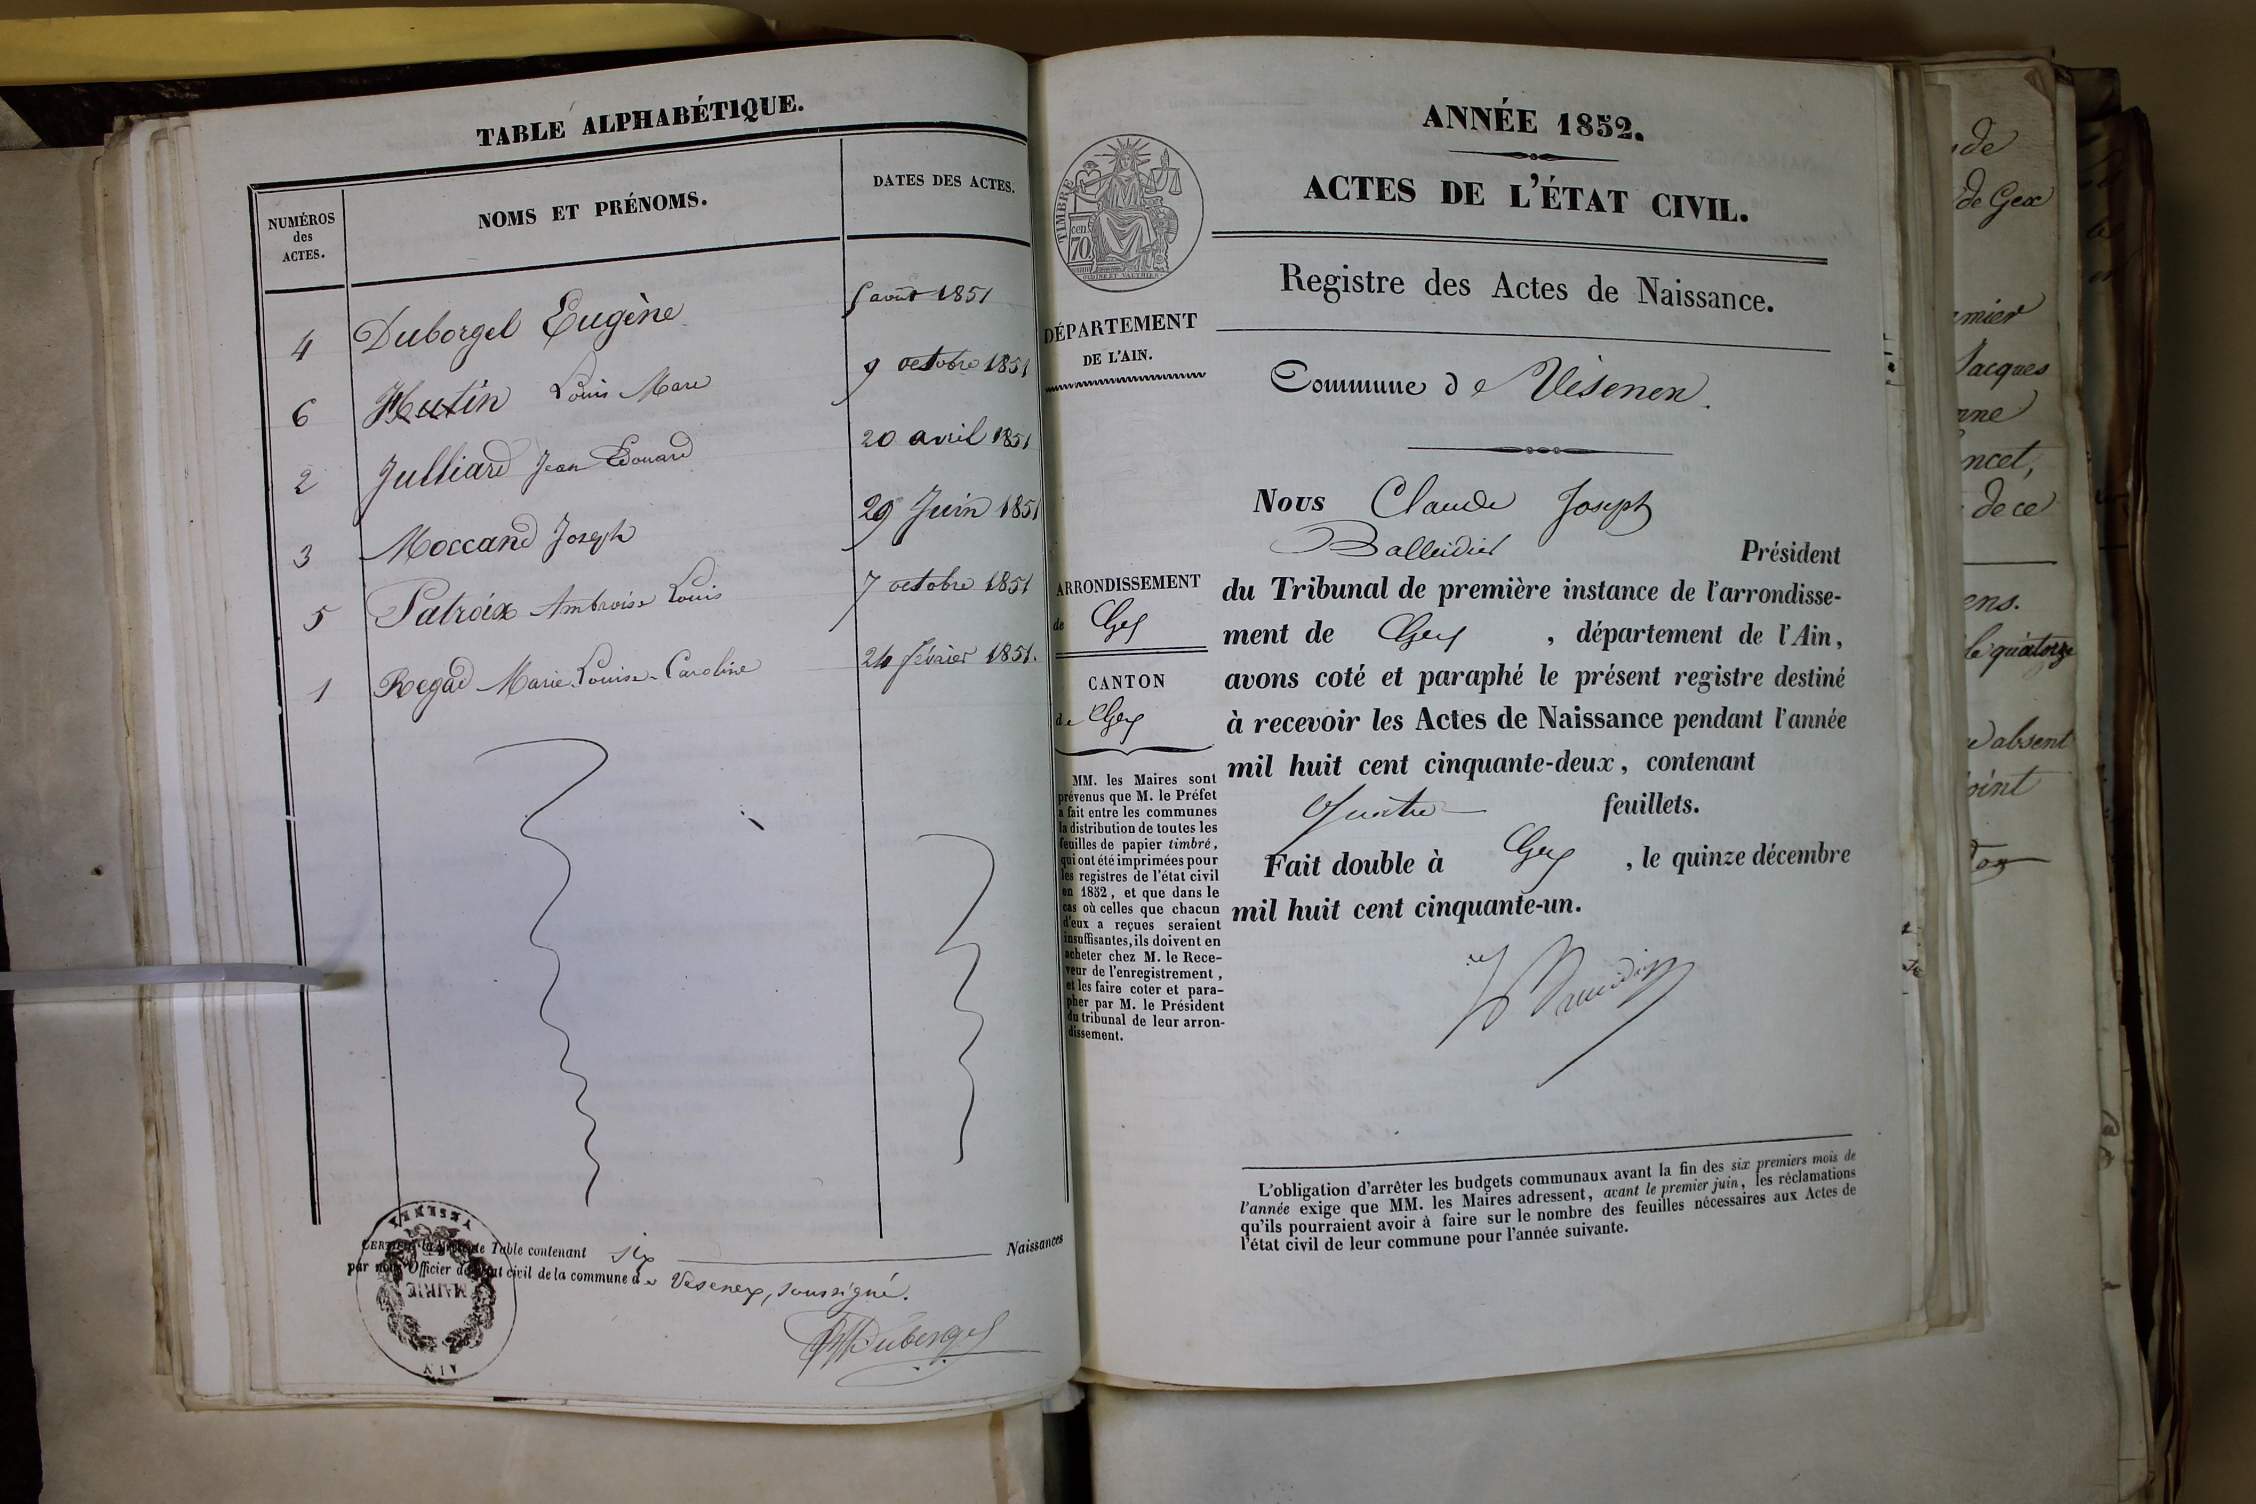 TABLE ALPHABÉTIQUE.
NUMÉROS des ACTES.
NOMS ET PRÉNOMS.
DATES DES ACTES.
4 Duborgel Eugène 5 août 1851
6 Hutin Louis Marc 9 octobre 1851
2 Julliard Jean Edouard 20 avril 1851
3 Moccand Joseph 29 Juin 1851
5 Patroix Ambroise Louis 7 octobre 1851
1 Regad Marie-Louise-Caroline 24 février 1851.
Table contenant six Naissances
par nous Officier de l'état civil de la commune de Vesenex, soussigné.
Duborgel
VESENEX
MAIRIE
AIN
ANNÉE 1852.
ACTES DE L'ÉTAT CIVIL.
TIMBRE
70
cen.
Registre des Actes de Naissance.
DÉPARTEMENT
DE L'AIN.
Commune de Vésenex.
Nous Claude Joseph
Balleidier Président
du Tribunal de première instance de l'arrondisse-
ment de Gex, département de l'Ain,
avons coté et paraphé le présent registre destiné
à recevoir les Actes de Naissance pendant l'année
mil huit cent cinquante-deux, contenant
Quatre feuillets.
Fait double à Gex, le quinze décembre
mil huit cent cinquante-un.
ARRONDISSEMENT
de Gex
CANTON
de Gex
MM. les Maires sont
prévenus que M. le Préfet
a fait entre les communes
la distribution de toutes les
feuilles de papier timbré,
qui ont été imprimées pour
les registres de l'état civil
en 1852, et que dans le
cas où celles que chacun
d'eux a reçues seraient
insuffisantes, ils doivent en
acheter chez M. le Rece-
veur de l'enregistrement,
et les faire coter et para-
pher par M. le Président
du tribunal de leur arron-
dissement.
L'obligation d'arrêter les budgets communaux avant la fin des six premiers mois de
l'année exige que MM. les Maires adressent, avant le premier juin, les réclamations
qu'ils pourraient avoir à faire sur le nombre des feuilles nécessaires aux Actes de
l'état civil de leur commune pour l'année suivante.
de
de Gex
Jacques
de ce
le quatorze
absent